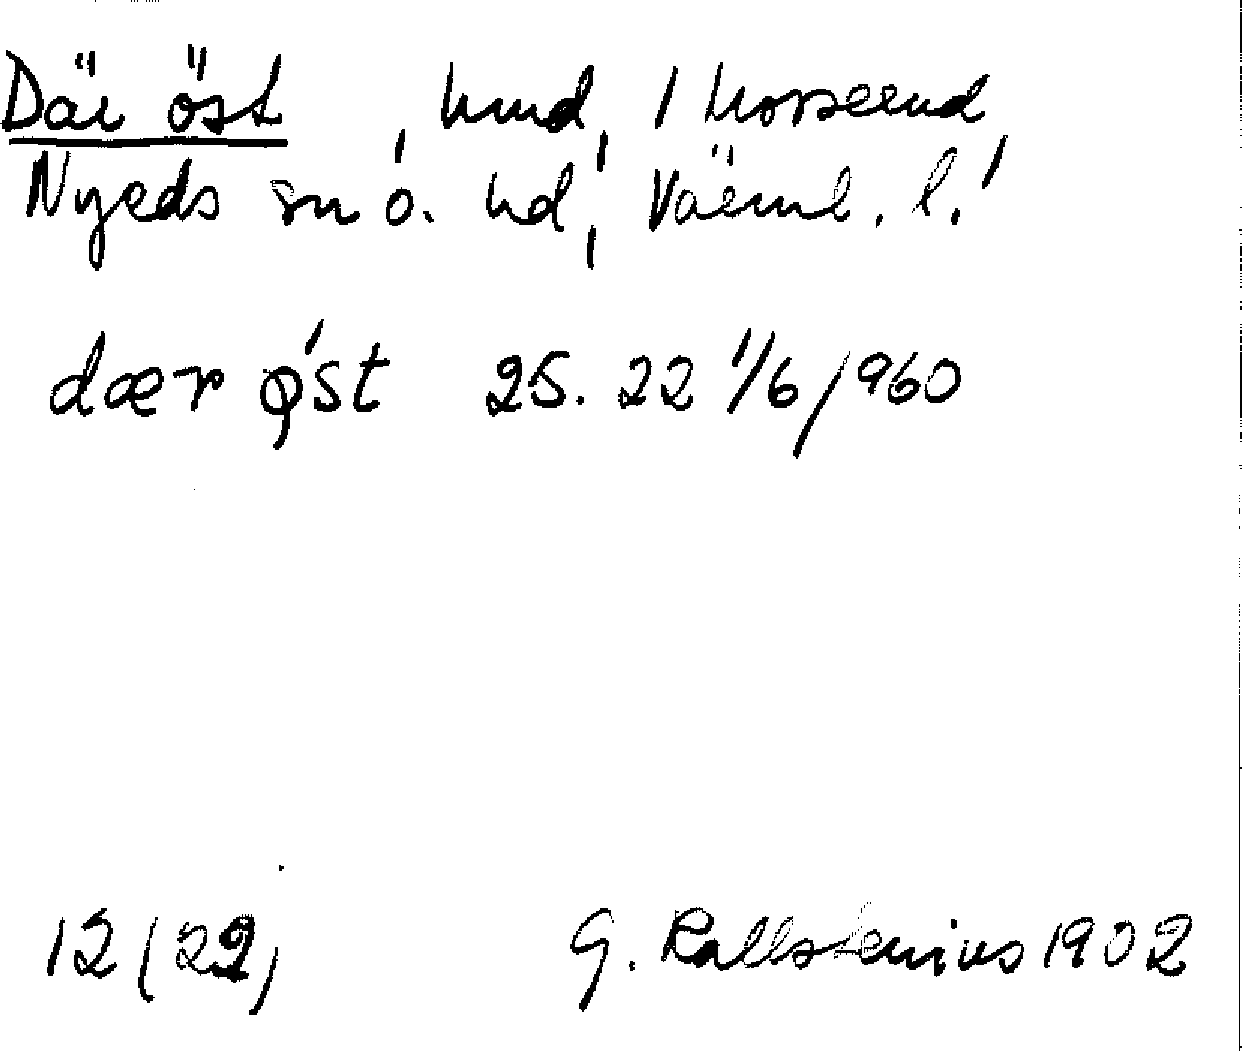 Där öst, hmd, 1 Norserud,
Nyeds sn o. hd, Värml. l.
dær ǫ́st 25. 22 1/6/960
12 (22) G. Kallstenius 1902